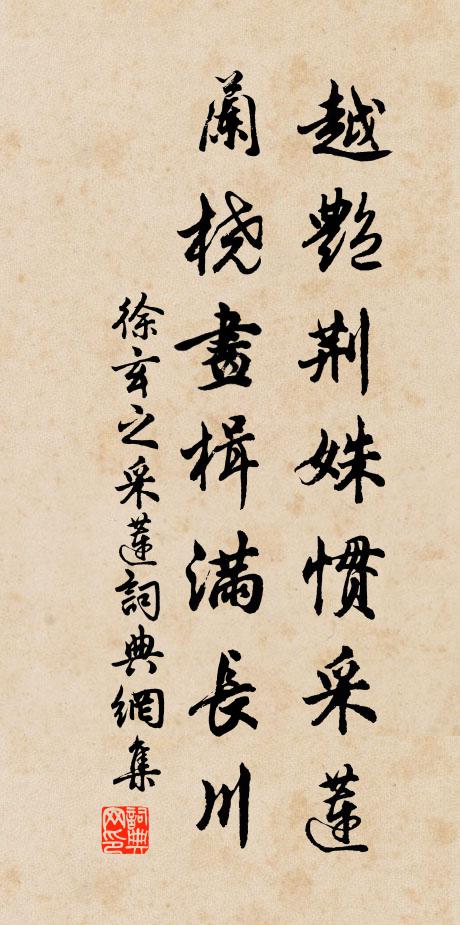 越艷荆姝慣采蓮
蘭橈畫楫滿長川
徐玄之采蓮詞典網集
詞典網印